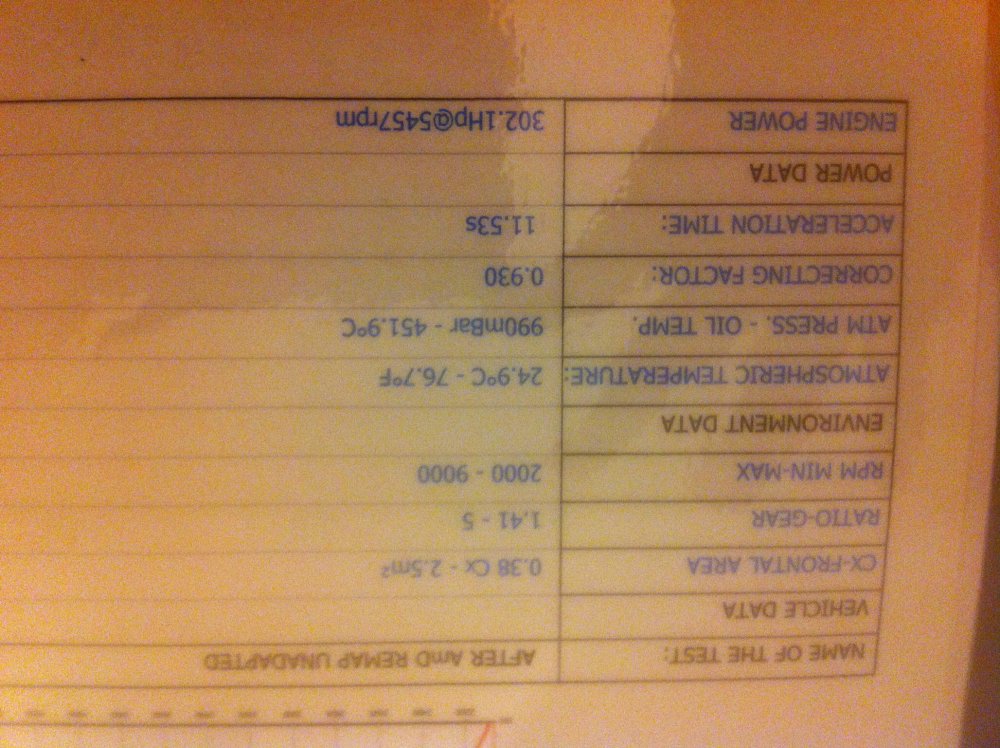 NAME OF THE TEST: AFTER AmD REMAP UNADAPTED
VEHICLE DATA
CX-FRONTAL AREA 0.38 Cx - 2.5m²
RATIO-GEAR 1.41 - 5
RPM MIN-MAX 2000 - 9000
ENVIRONMENT DATA
ATMOSPHERIC TEMPERATURE: 24.9°C - 76.7°F
ATM PRESS. - OIL TEMP. 990mBar - 451.9°C
CORRECTING FACTOR: 0.930
ACCELERATION TIME: 11.53s
POWER DATA
ENGINE POWER 302.1Hp@5457rpm